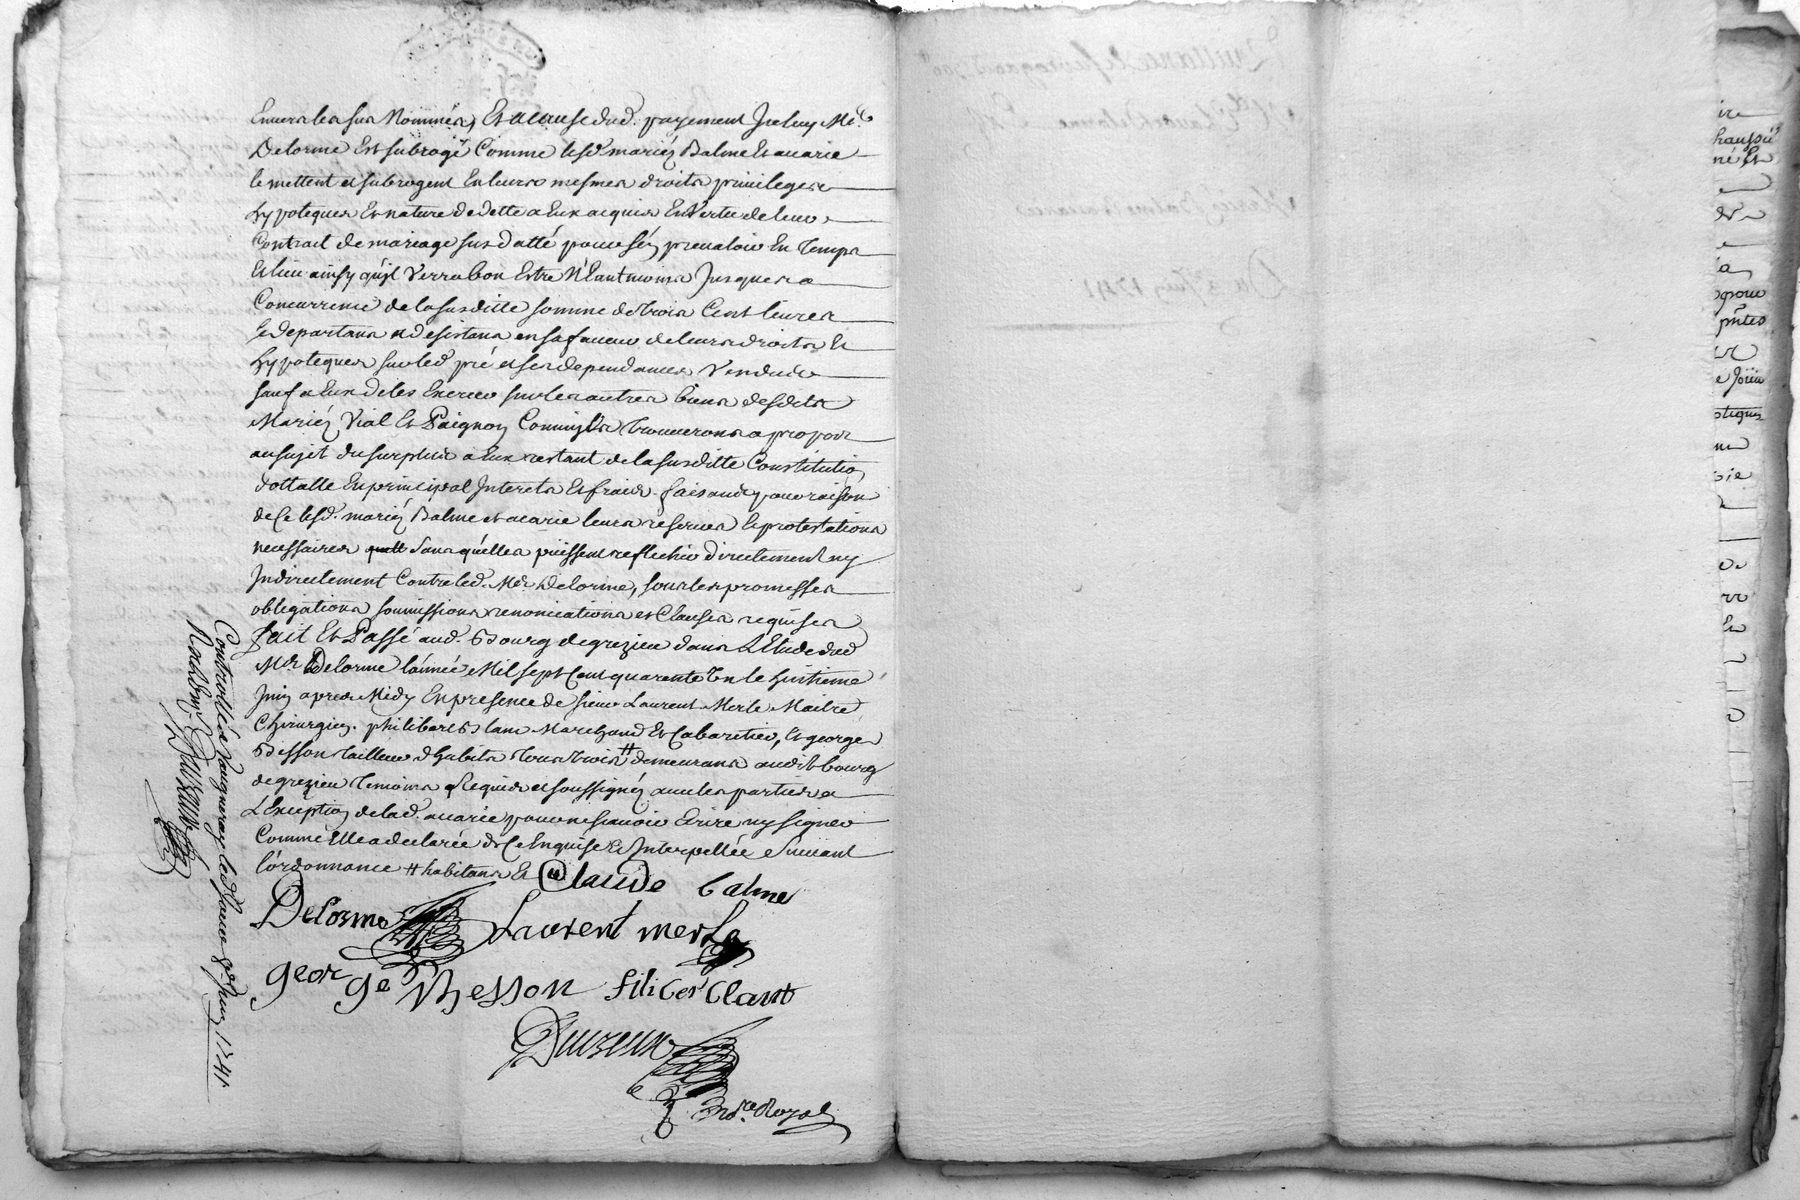 Envers les sus Nommés, Et a cause dud. payement Iceluy Me.
Delorme Est subrogé Comme lesd. mariéz Balme Et acarie
le mettent et subrogent En leurs mesmes droits privileges
hypoteques Et nature de dette a Eux acquis En Vertu de leur
Contract de mariage sus datté pour s'en prevaloir En Temps
Et lieu ainsy qu'il Verra bon Estre Néantmoins Jusques a
Concurrence de la susditte somme de trois Cent livres
se departans et desistans en sa faveur de leurs droits Et
hypoteques sur led. pré et ses dependances Vendus
sauf a Eux de les Exercer sur les autres biens desdits
Mariéz Vial Et Paignon Comm'ils trouverons a propos
au sujet du surplus a Eux restant de la susditte Constitution
dottalle En principal Interets Et frais faisant pour raison
de Ce lesd. mariéz Balme et acarie leurs reserves Et protestations
necessaires sans qu'elles puissent reflechir directement ny
Indirectement Contre led. Me. Delorme, sous les promesses
obligations soumissions renonciations et Clauses requises
fait Et Passé aud. Bourg de grezieu dans L'Etude dud
Me. Delorme l'année Mil sept Cent quarante Un le huitieme
Juin apres Midy En presence de sieur Laurent Merle Maitre
Chirurgien, philibert Clam Marchand Et Cabaretier, Et george
Besson tailleur d'habits tous trois # demeurans audit bourg
de grezieu temoins Requis et soussignéz avec les parties a
L'Exception de lad. acarie pour ne sçavoir Ecrire ny signer
Comme Elle a declarée de Ce Enquise Et Interpellée Suivant
l'ordonnance # habitans Et
Claude balme
Delorme
Laurent merle
george Besson
filiber Clant
Duvzeux
Nore. Royal
Controllé a Vaugneray led. Jour 8e. Juin 1741